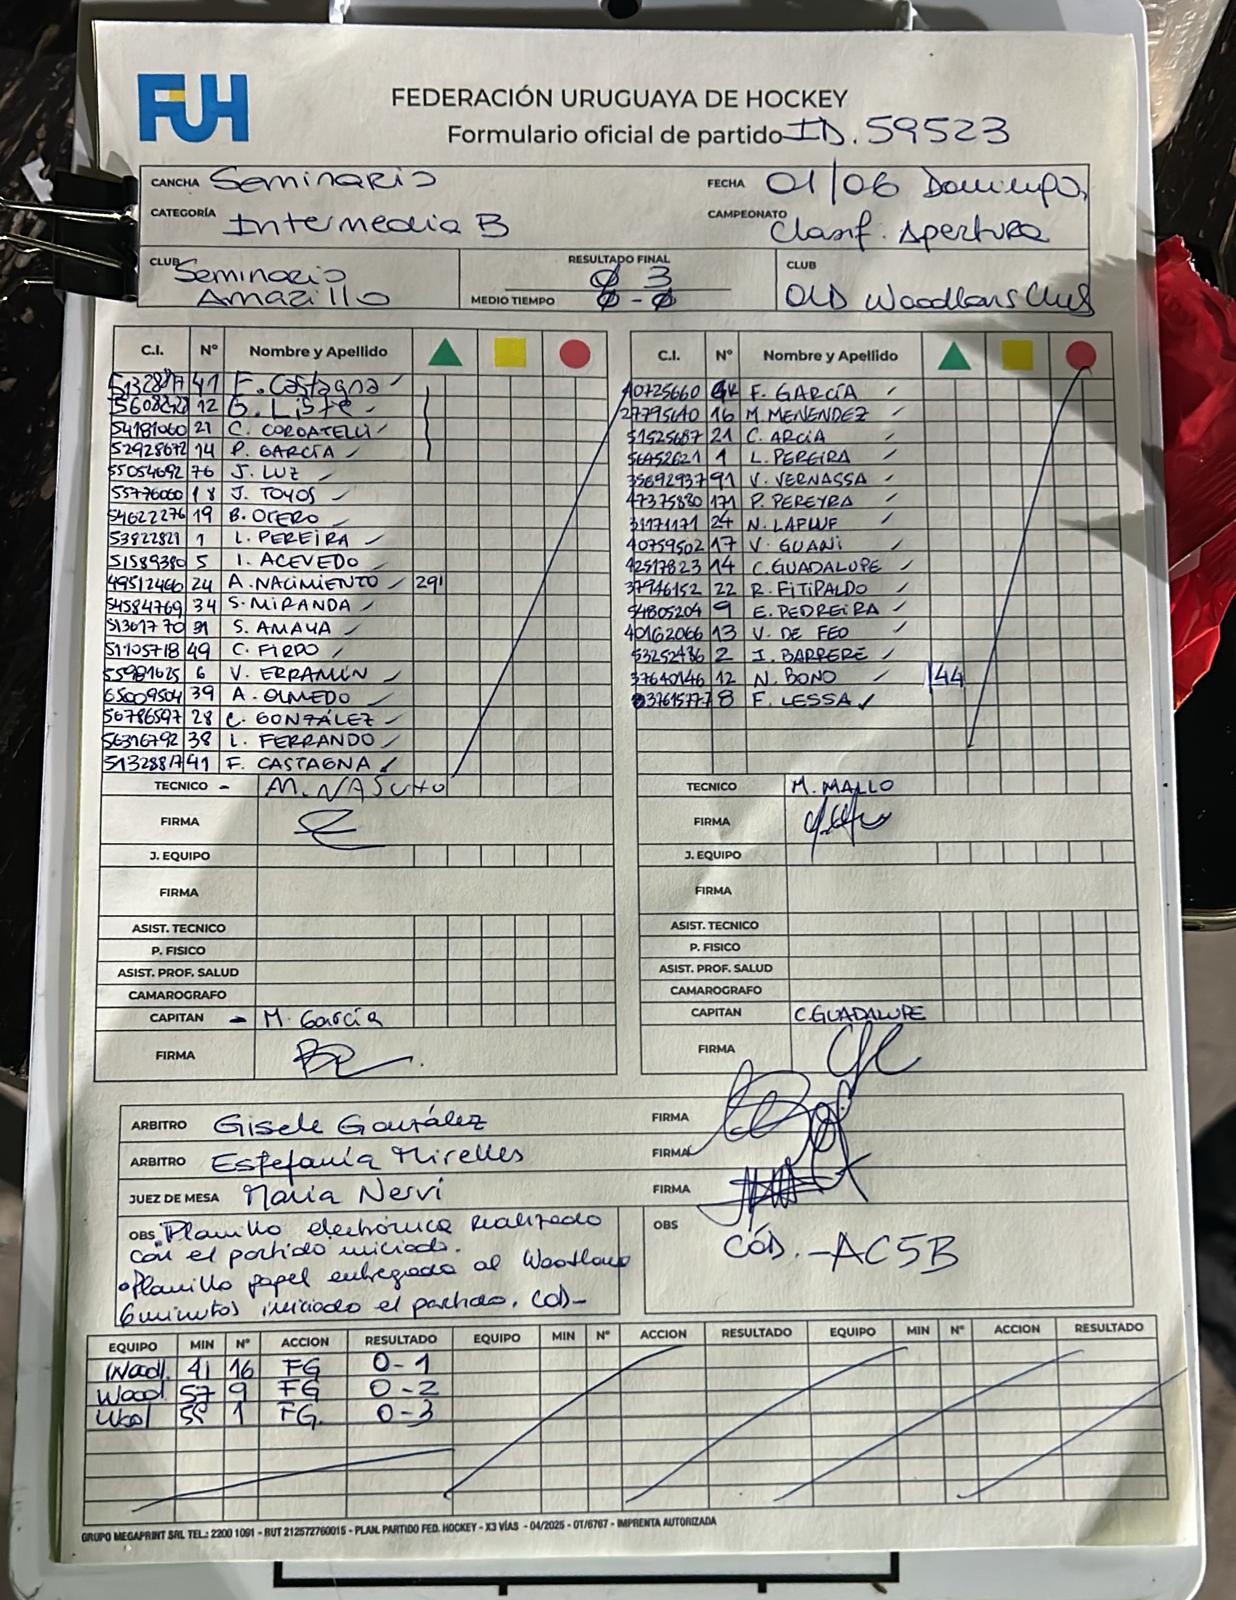 FUH
FEDERACIÓN URUGUAYA DE HOCKEY
Formulario oficial de partido ID. 59523
CANCHA Seminario FECHA 01/06 Domingo,
CATEGORÍA Intermedia B CAMPEONATO Clasif. Apertura
CLUB Seminario Amarillo
RESULTADO FINAL Ø 3
MEDIO TIEMPO Ø-Ø
CLUB OLD Woodlans Club
C.I. Nº Nombre y Apellido
5132887 41 F. Castagna
12 G. Liste
54181060 21 C. CORDATELLI
52928672 14 P. GARCÍA
55054692 76 J. LUZ
55776060 18 J. TOYOS
54622276 19 B. OTERO
53822821 1 L. PEREIRA
51589380 5 I. ACEVEDO
49512466 24 A. NACIMIENTO 29'
54584769 34 S. MIRANDA
51361770 31 S. AMAYA
51105718 49 C. FIRPO
55981625 6 V. ERRAMÚN
65009504 39 A. OLMEDO
56786597 28 C. GONZÁLEZ
56316792 38 L. FERRANDO
5132887 41 F. CASTAGNA
TECNICO - M. NASCHO
FIRMA
J. EQUIPO
FIRMA
ASIST. TECNICO
P. FISICO
ASIST. PROF. SALUD
CAMAROGRAFO
CAPITAN - M. García
FIRMA
C.I. Nº Nombre y Apellido
40725660 GK F. GARCÍA
27795640 16 M. MENENDEZ
51525687 21 C. ARCIA
56452621 1 L. PEREIRA
35692937 91 V. VERNASSA
47375880 171 P. PEREYRA
31171171 24 N. LAFLUF
40759502 17 V. GUANI
42517823 14 C. GUADALUPE
37946152 22 R. FITIPALDO
54805204 9 E. PEDREIRA
40162066 13 V. DE FEO
53252486 2 I. BARRERE
37640146 12 N. BONO 44
3761577-7 8 F. LESSA
TECNICO M. MALLO
FIRMA
J. EQUIPO
FIRMA
ASIST. TECNICO
P. FISICO
ASIST. PROF. SALUD
CAMAROGRAFO
CAPITAN C. GUADALUPE
FIRMA
ARBITRO Gisele González FIRMA
ARBITRO Estefanía Mirelles FIRMA
JUEZ DE MESA Maria Nervi FIRMA
OBS Planilla electrónica realizada
con el partido iniciado.
Planilla papel entregada al Woodlans
6 minutos iniciado el partido. COD-
OBS CÓD.-AC5B
EQUIPO MIN Nº ACCION RESULTADO EQUIPO MIN Nº ACCION RESULTADO EQUIPO MIN Nº ACCION RESULTADO
Wood. 41 16 FG 0-1
Wood 57 9 FG 0-2
Wool 55 1 FG. 0-3
GRUPO MEGAPRINT SRL TEL.: 2200 1091 - RUT 212572760015 - PLAN. PARTIDO FED. HOCKEY - X3 VÍAS - 04/2025 - OT/6767 - IMPRENTA AUTORIZADA